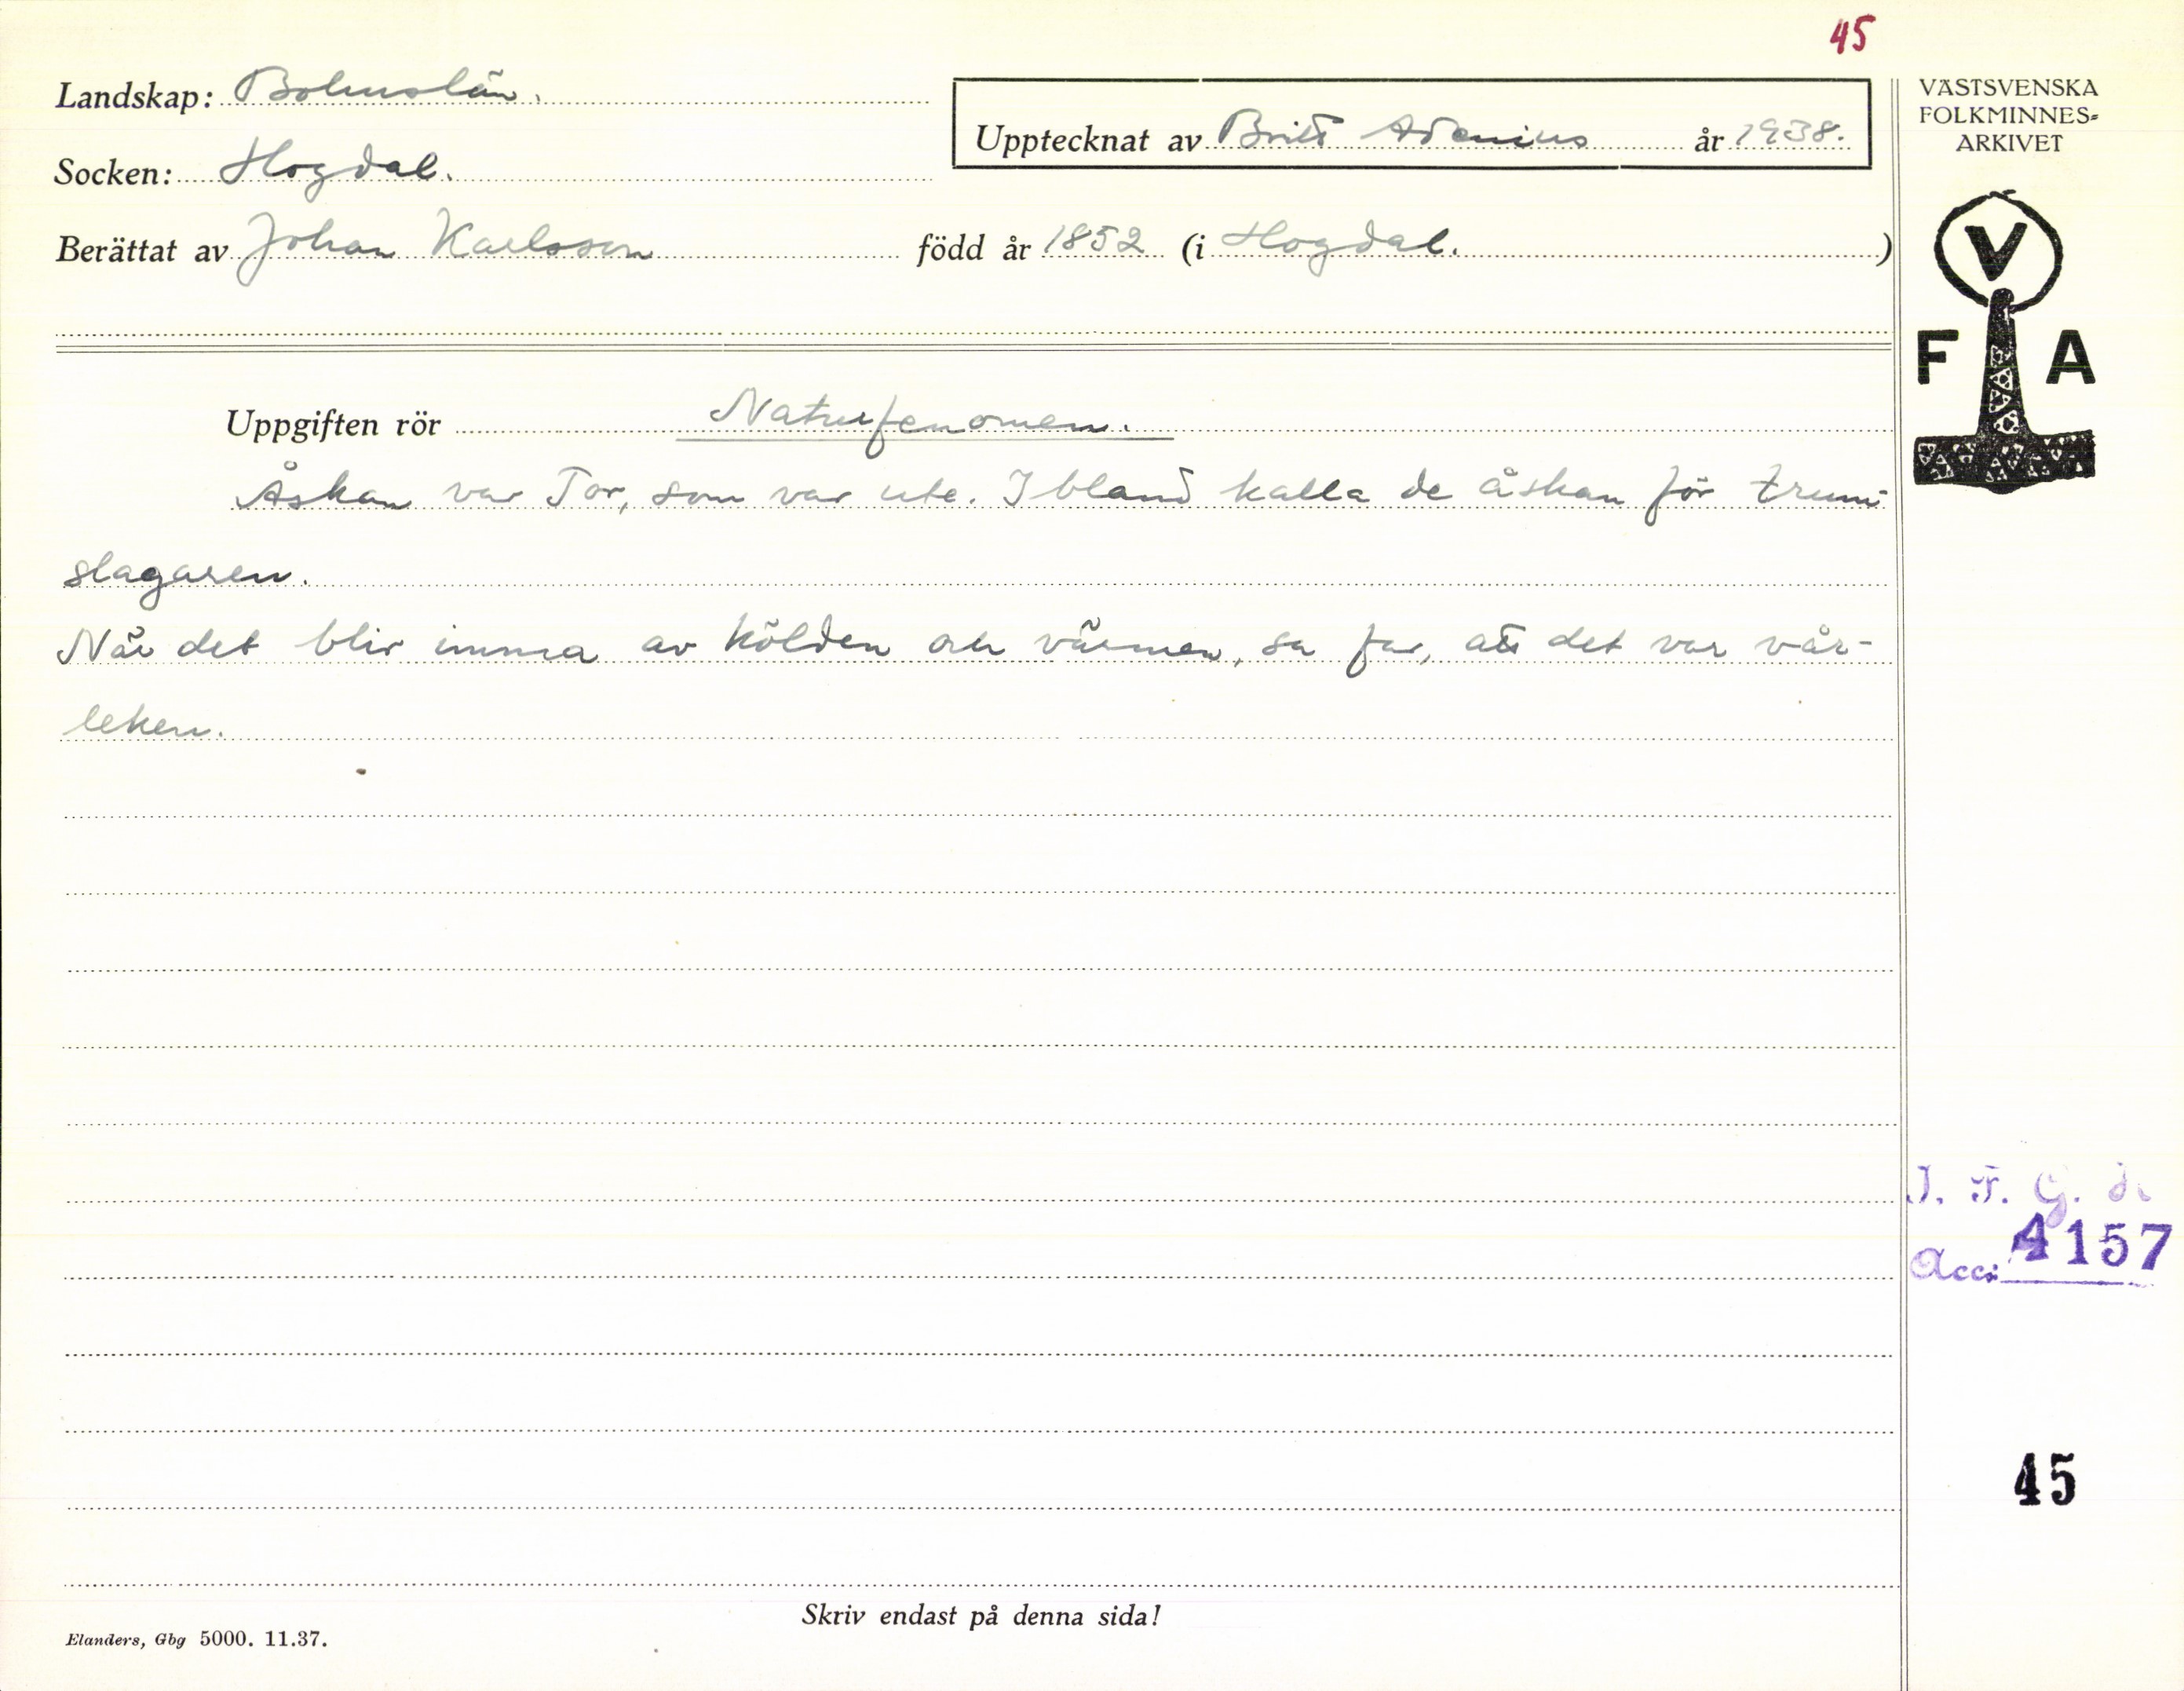 45
Landskap: Bohuslän.
Upptecknat av Britt Adenius år 1938.
VÄSTSVENSKA
FOLKMINNES=
ARKIVET
Socken: Hogdal.
Berättat av Johan Karlsson född år 1852 (i Hogdal. )
V
F A
Uppgiften rör Naturfenomen.
Åskan var Tor, som var ute. Ibland kalla de åskan för trum-
slagaren.
När det blir imma av kölden och värmen, sa far, att det var vår-
leken.
I. F. G. H.
Acc: 4157
45
Skriv endast på denna sida!
Elanders, Gbg 5000. 11.37.